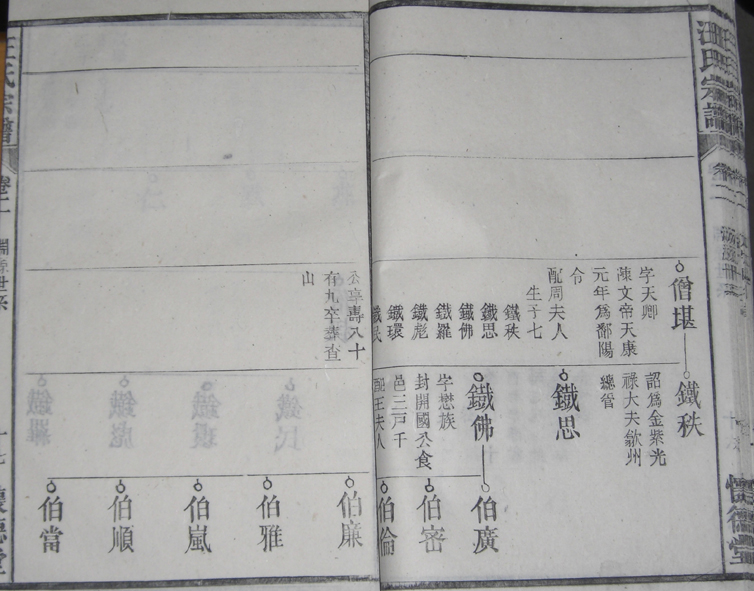 汪氏宗譜
懷德堂
僧堪
字天卿
陳文帝天康
元年爲鄱陽
令
配周夫人
生子七
鐵秩
鐵思
鐵佛
鐵羅
鐵彪
鐵環
鐵民
公享壽八十
有九卒葬查
山
鐵秩
詔爲金紫光
祿大夫歙州
總管
鐵思
鐵佛
字懋族
封開國公食
邑三戸千
配王夫人
伯廣
伯密
伯倫
伯廉
伯雅
伯嵐
伯順
伯當
汪氏宗譜
卷二
懷德堂